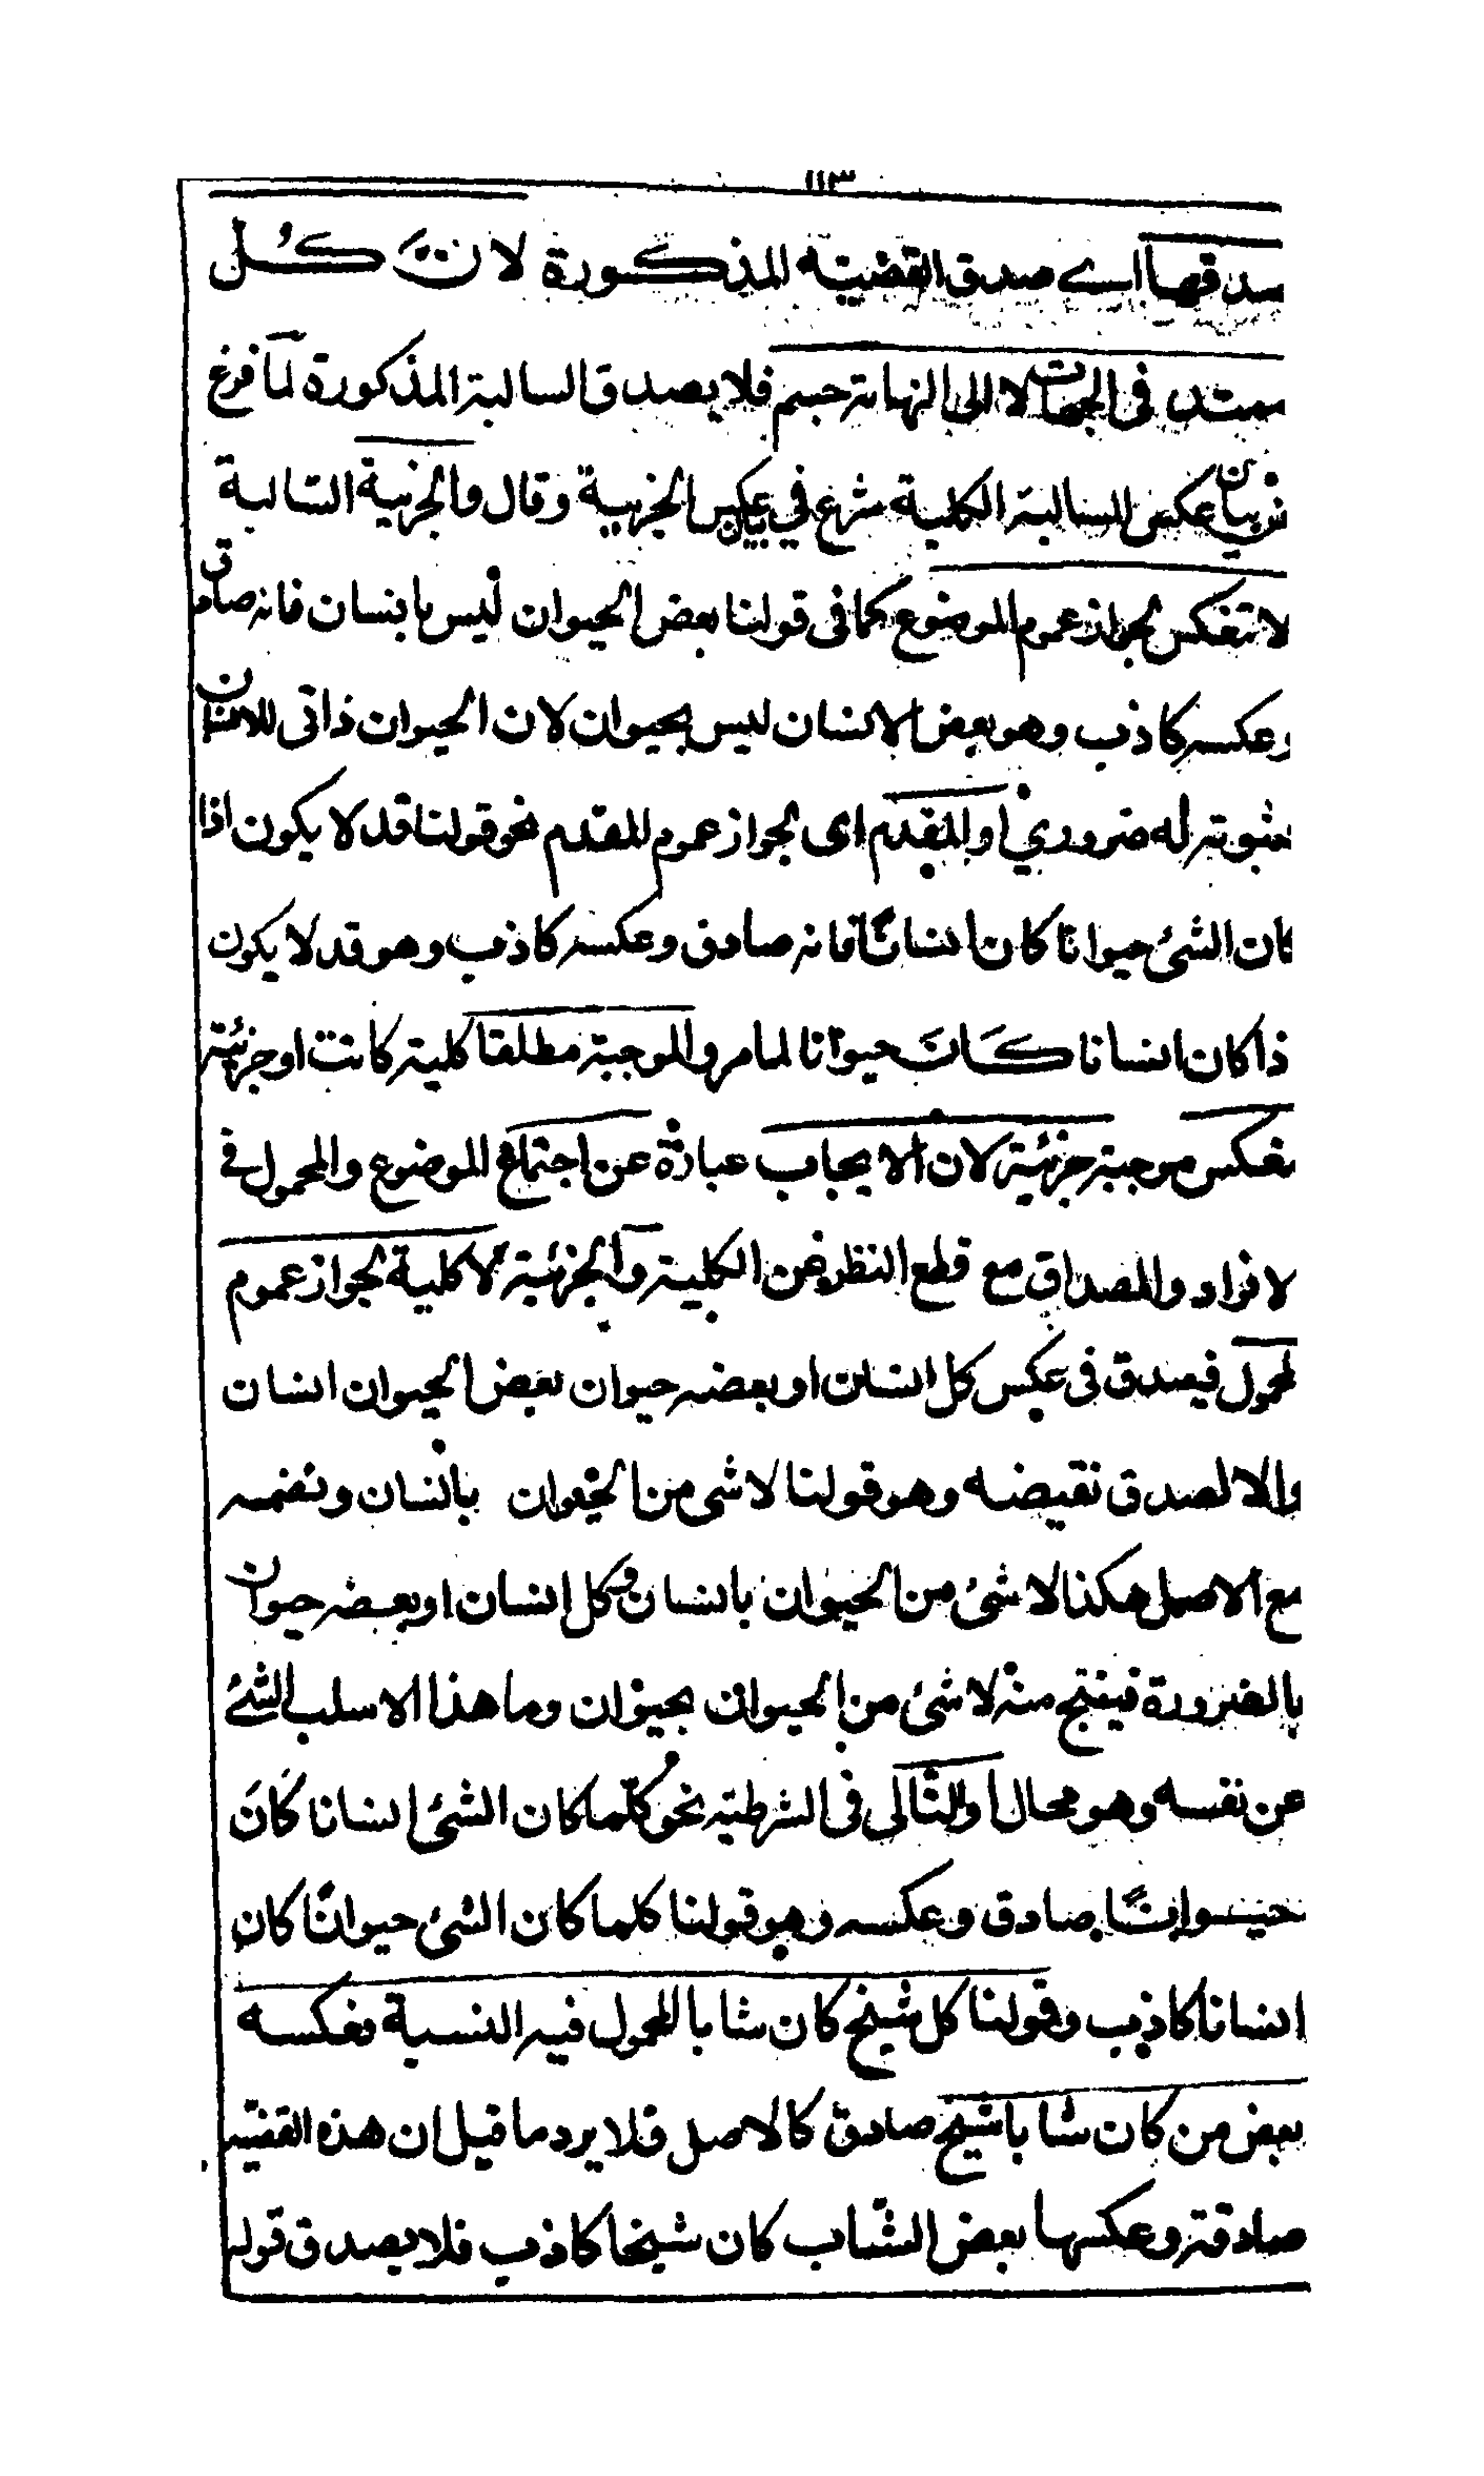 ١١٣
صدقها اے صدق القضیته المذکورة لان کُل
ممتد فی الجهات لا الی النهایة جسم فلا یصدق السالبة المذکورة لما فرغ
من بیان عکس السالبة الکلیة شرع فی بیان عکس الجزیية وقال والجزیية السالبة
لا تنعکس لجواز عموم الموضوع کما فی قولنا بعض الحیوان لیس بانسان فانه صادق
وعکسه کاذب وهو بعض الانسان لیس بحیوان لان الحیوان ذاتی للانسان
ثبوته له ضروري او المقدم ای لجواز عموم المقدم نحو قولنا قد لا یکون اذا
کان الشئ حیوانا کان انسانًا فانه صادق وعکسه کاذب وهو قد لا یکون
ذا کان انسانا کَانَ حیوانا لما مر والموجبة مطلقا کلیة کانت او جزئیة
تنعکس موجبة جزئیة لان الایجاب عبارة عن اجتماع الموضوع والمحمول فی
لافراد والمصداق مع قطع النظر عن الکلیة والجزئیة لا کلیة لجواز عموم
لمحمول فیصدق فی عکس کل انسان او بعضه حیوان بعض الحیوان انسان
والا لصدق نقیضه وهو قولنا لا شی من الحیوان بانسان ونضمه
مع الاصل هکذا لا شئ من الحیوان بانسان وکل انسان او بعضه حیوان
بالضرورة فینتج منه لا شئ من الحیوان بحیوان وما هذا الا سلب الشئ
عن نفسه وهو محال او التالی فی الشرطیة نحو کلّما کان الشئ انسانا کَانَ
حیوانًا صادق وعکسه وهو قولنا کلما کان الشئ حیوانًا کان
انسانا کاذب وقولنا کل شیخ کان شابا المحمول فیه النسبة فعکسه
بعض من کان شابا شیخ صادق کالاصل فلا یرد ما قیل ان هذه القضیة
صادقة وعکسها بعض الشّاب کان شیخا کاذب فلا یصدق قولنا